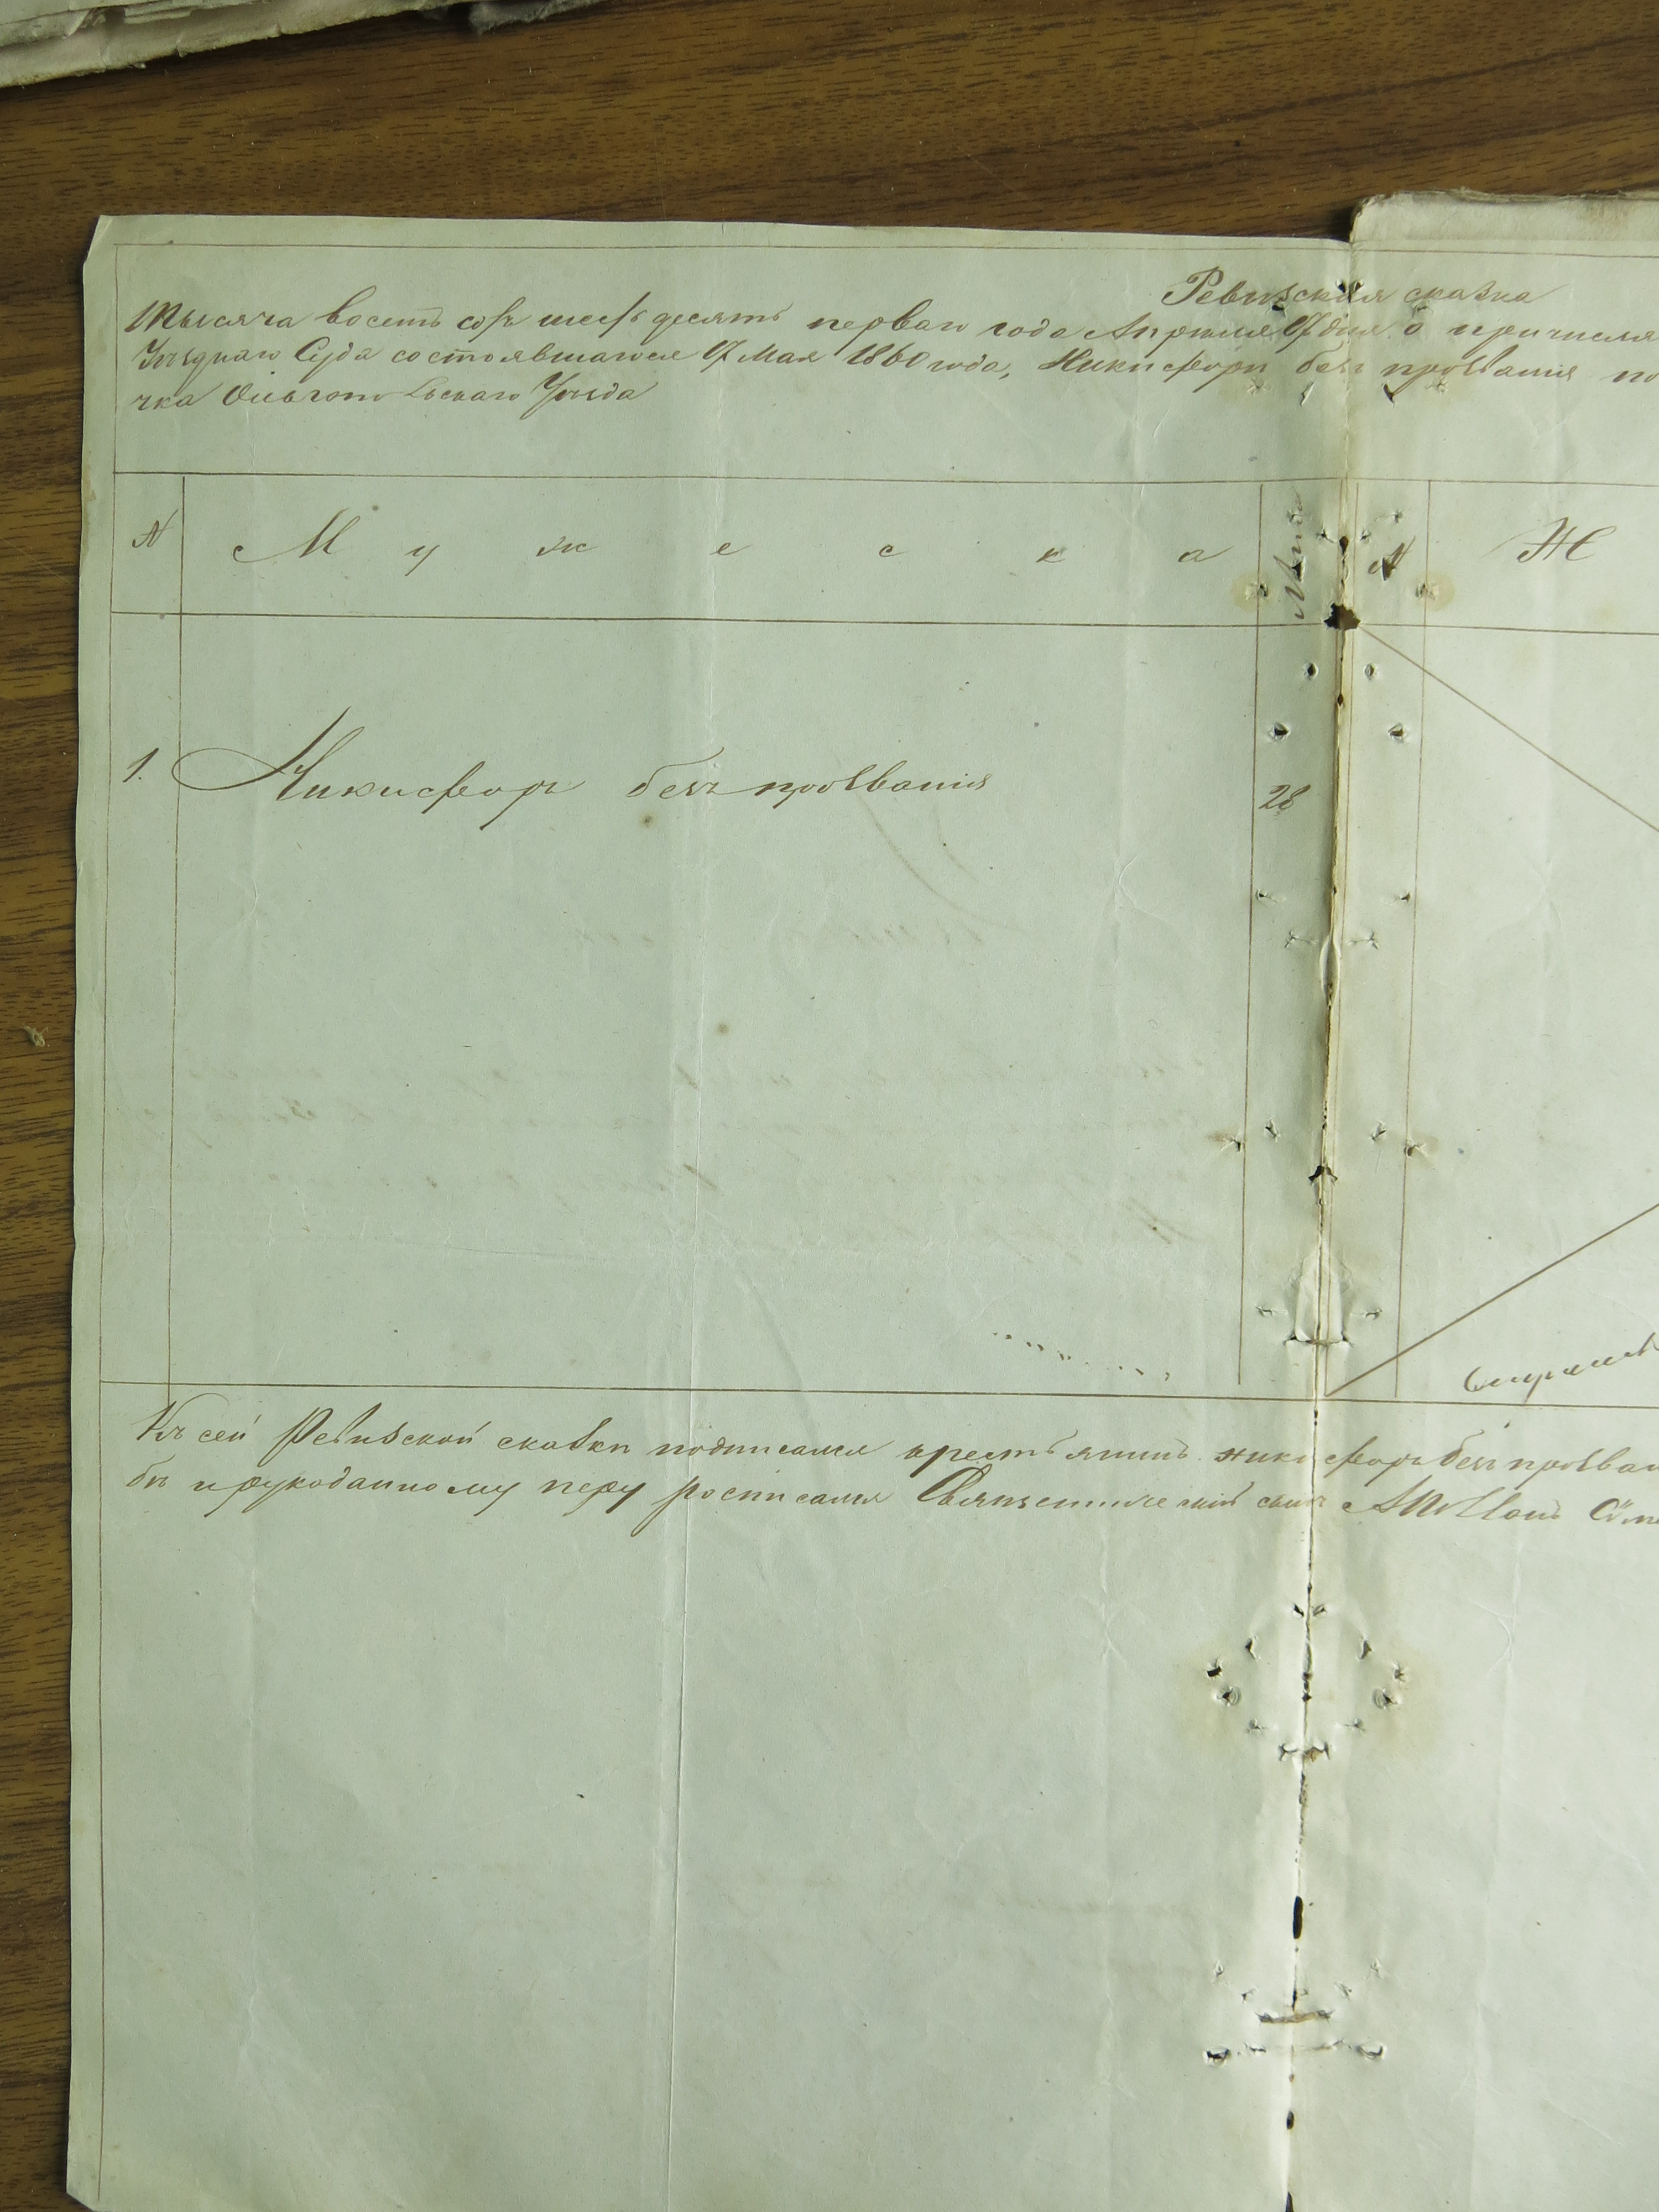 Ревизская сказка
Тысяча восемь сотъ шестьдесятъ перваго года Апреля дня о причисле
Уѣзднаго Суда состоявшагося Мая 1860 года, Никифоръ безъ прозванія по
чка Ольгопольскаго Уѣзда
N Мужеска Лѣта N Ж
1. Никифоръ безъ прозванія 28
Къ сей Ревизской сказки подписался крестьянинъ никифоръ безъ прозван
рукоданному перу росписался Священическій сынъ